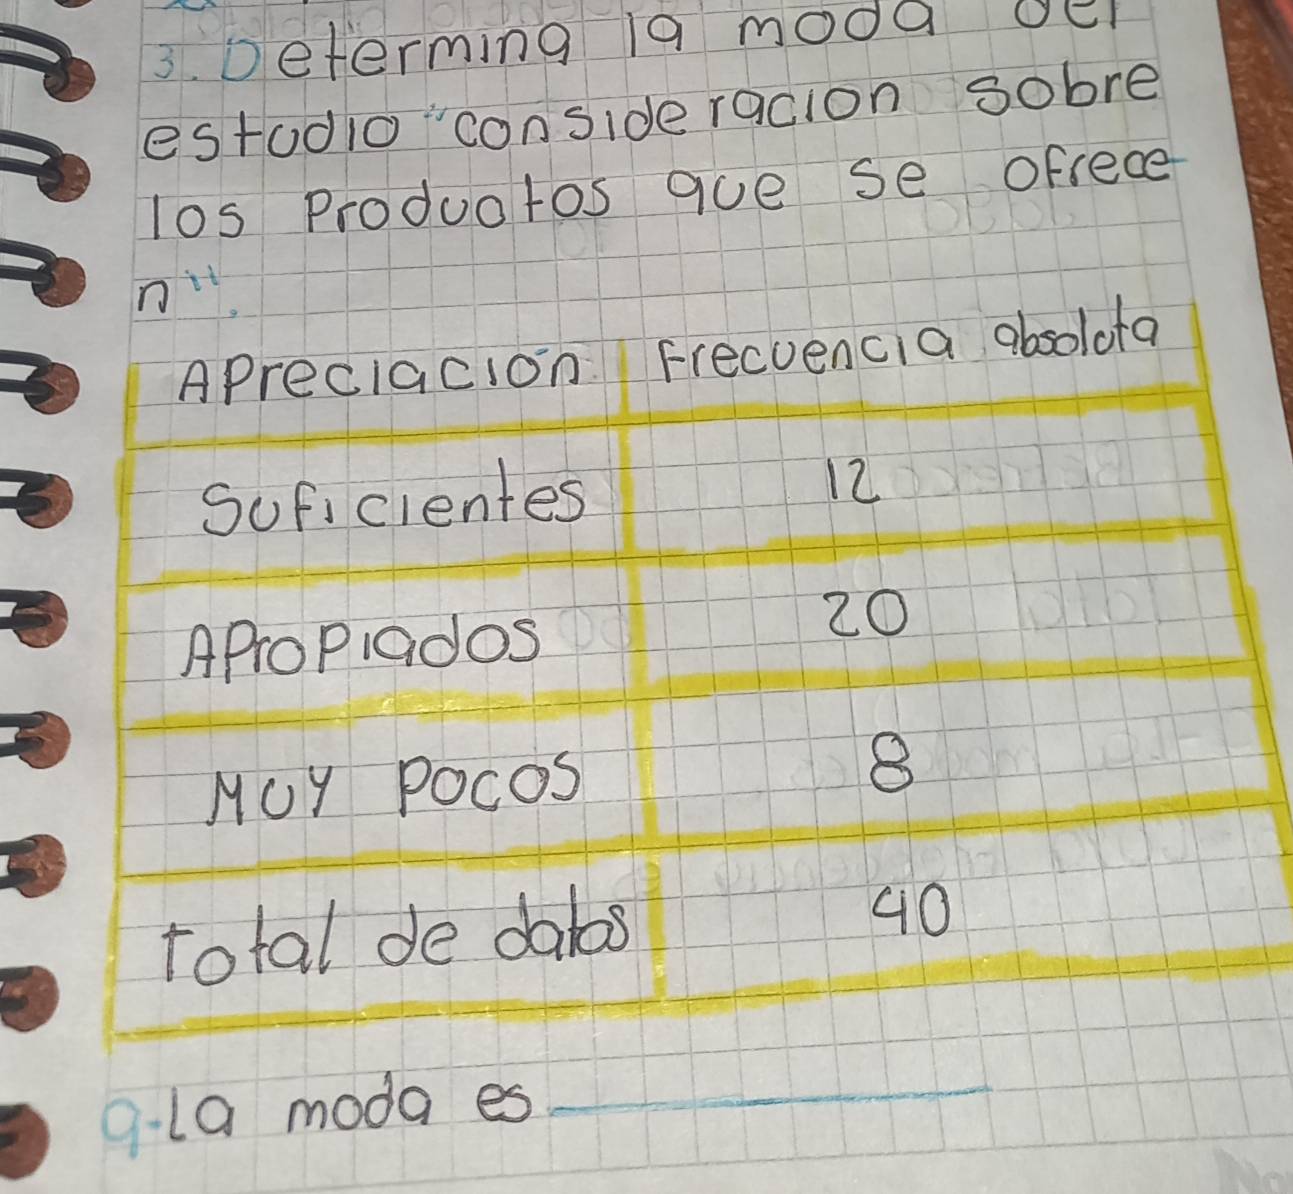 3. Determina la moda del
estudio "consideracion sobre
los Productos que se ofrece
n".
Apreciación Frecuencia absoluta
Suficientes 12
Apropiados 20
Muy Pocos 8
Total de datos 40
a. la moda es